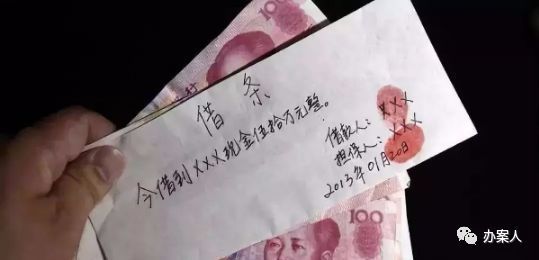 100
借条
今借到XXX现金伍拾万元整。
借款人：XXX
担保人：XXX
2013年01月20日
100
办案人